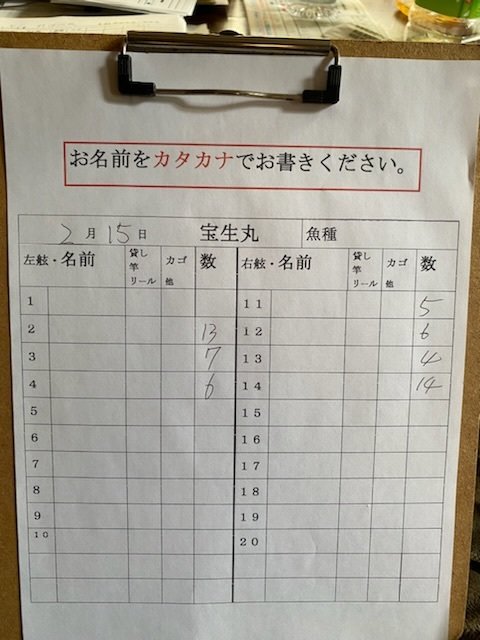 お名前をカタカナでお書きください。
2月15日 宝生丸 魚種
左舷・名前 貸し竿リール カゴ他 数 右舷・名前 貸し竿リール カゴ他 数
1 11 5
2 13 12 6
3 7 13 4
4 6 14 14
5 15
6 16
7 17
8 18
9 19
10 20